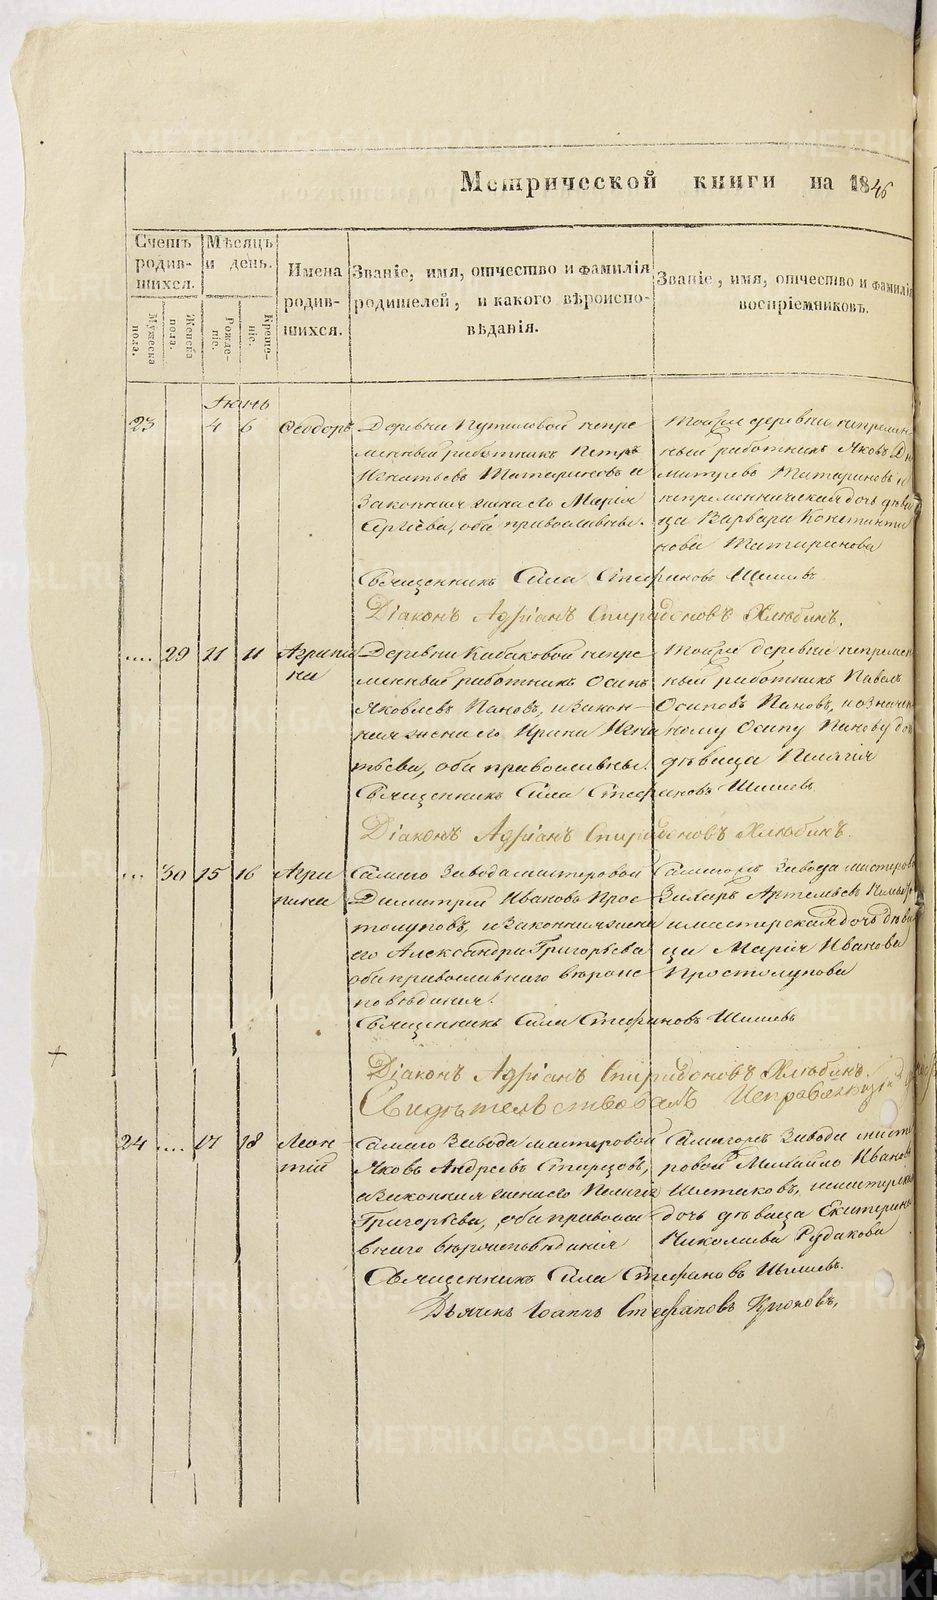 Метрической книги на 1846
Счетъ родив-шихся.
Мѣсяцъ и день.
Имена родив-шихся.
Званіе, имя, отчество и фамилія родителей, и какого вѣроиспо-вѣданія.
Званіе, имя, отчество и фамилія воспріемниковъ.
Мужеска пола.
Женска пола.
Рожде-ніе.
Креще-ніе.
Іюнь
23 4 6 Ѳеодоръ
Деревни Путиловой непре
менный работникъ Петръ
Игнатьевъ Татариновъ и
законная жена его Марія
Сергіева, оба православные.
Тойже деревни непремен
ный работникъ Яковъ Ди
митріевъ Татариновъ и
непременническая дочь деви
ца Варвара Константи
нова Татаринова
Священникъ Сила Стефановъ Шишевъ
Діаконъ Адріанъ Спиридоновъ Хлюбинъ.
.... 29 11 11 Агрипи
на
Деревни Кабаковой непре
менный работникъ Осипъ
Яковлевъ Пановъ, и закон-
ная жена его Ирина Игна
тьева, оба православные.
Тойже деревни непремен
ный работникъ Павелъ
Осиповъ Пановъ, и означен
ному Осипу Панову дочь
дѣвица Пелагія
Священникъ Сила Стефановъ Шишевъ
Діаконъ Адріанъ Спиридоновъ Хлюбинъ.
... 30 15 16 Агри
пина
Самаго Завода мастеровой
Димитрій Ивановъ Прос-
толуповъ, и законная жена
его Александра Григорьева
оба православнаго вѣроис
повѣданія.
Самагожъ Завода мастеровой
Захаръ Артемьевъ
и мастерская дочь дѣви
ца Марія Иванова
Простолупова
Священникъ Сила Стефановъ Шишевъ
Діаконъ Адріанъ Спиридоновъ Хлюбинъ.
Свидѣтельствовалъ
24 .... 17 18 Леон-
тій
Самаго Завода мастеровой
Яковъ Андреевъ Старцовъ,
и законная жена его Пелагія
Григорьева, оба правосла
внаго вѣроисповѣданія
Самагожъ Завода масте
ровой Михайло Ивановъ
Шестаковъ, и мастерская
дочь дѣвица Екатерина
Николаева Рудакова
Священникъ Сила Стефановъ Шишевъ.
Дьячекъ Іоаннъ Стефановъ Крюковъ,
METRIKI.GASO-URAL.RU